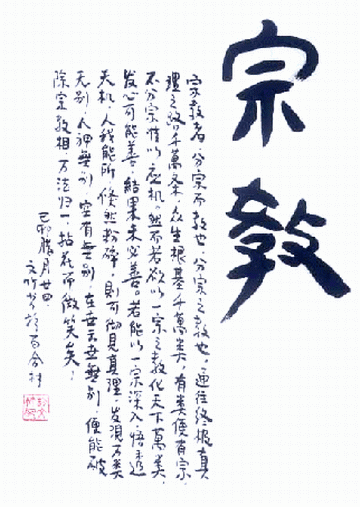 宗教
宗教者，分宗不教也，分宗之教也，通往終極真
理之路千萬条，众生根基千萬类，有类便有宗，
不分宗惟以应机，然不若欲以一宗之教化天下萬类，
发心可能善，结果未必善。若能以一宗深入，悟未造
天机，人我能所，倏然粉碎，則可彻見真理，发現万类
无别，人神無别，空有無别，在世出世無别，便能破
除宗教相，万法归一，拈花而微笑矣！
己卯腊月廿四
於百合村